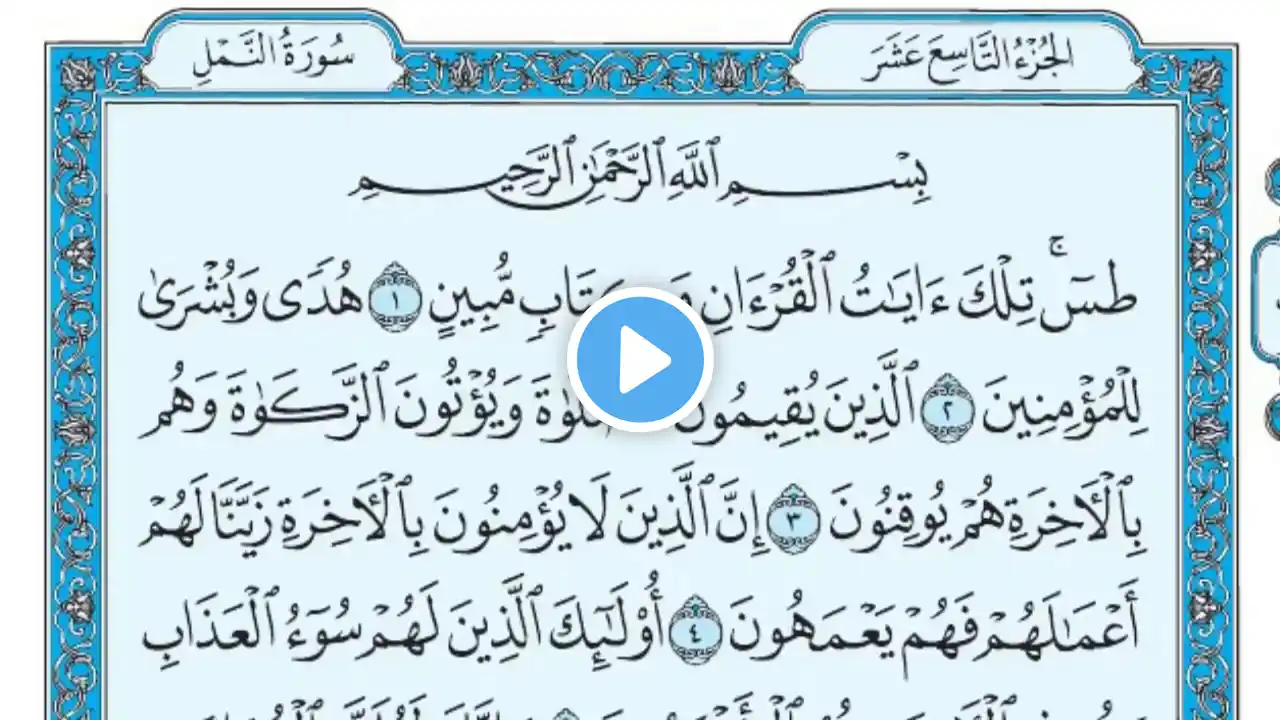 الجُزْءُ التَّاسِعَ عَشَرَ
سُورَةُ النَّمْلِ
بِسْمِ ٱللَّهِ ٱلرَّحْمَٰنِ ٱلرَّحِيمِ
طسٓۚ تِلْكَ ءَايَٰتُ ٱلْقُرْءَانِ كِتَابٖ مُّبِينٍ ١ هُدٗى وَبُشْرَىٰ
لِلْمُؤْمِنِينَ ٢ ٱلَّذِينَ يُقِيمُونَ وَيُؤْتُونَ ٱلزَّكَوٰةَ وَهُم
بِٱلْأٓخِرَةِ هُمْ يُوقِنُونَ ٣ إِنَّ ٱلَّذِينَ لَا يُؤْمِنُونَ بِٱلْأٓخِرَةِ زَيَّنَّا لَهُمْ
أَعْمَٰلَهُمْ فَهُمْ يَعْمَهُونَ ٤ أُوْلَٰٓئِكَ ٱلَّذِينَ لَهُمْ سُوٓءُ ٱلْعَذَابِ